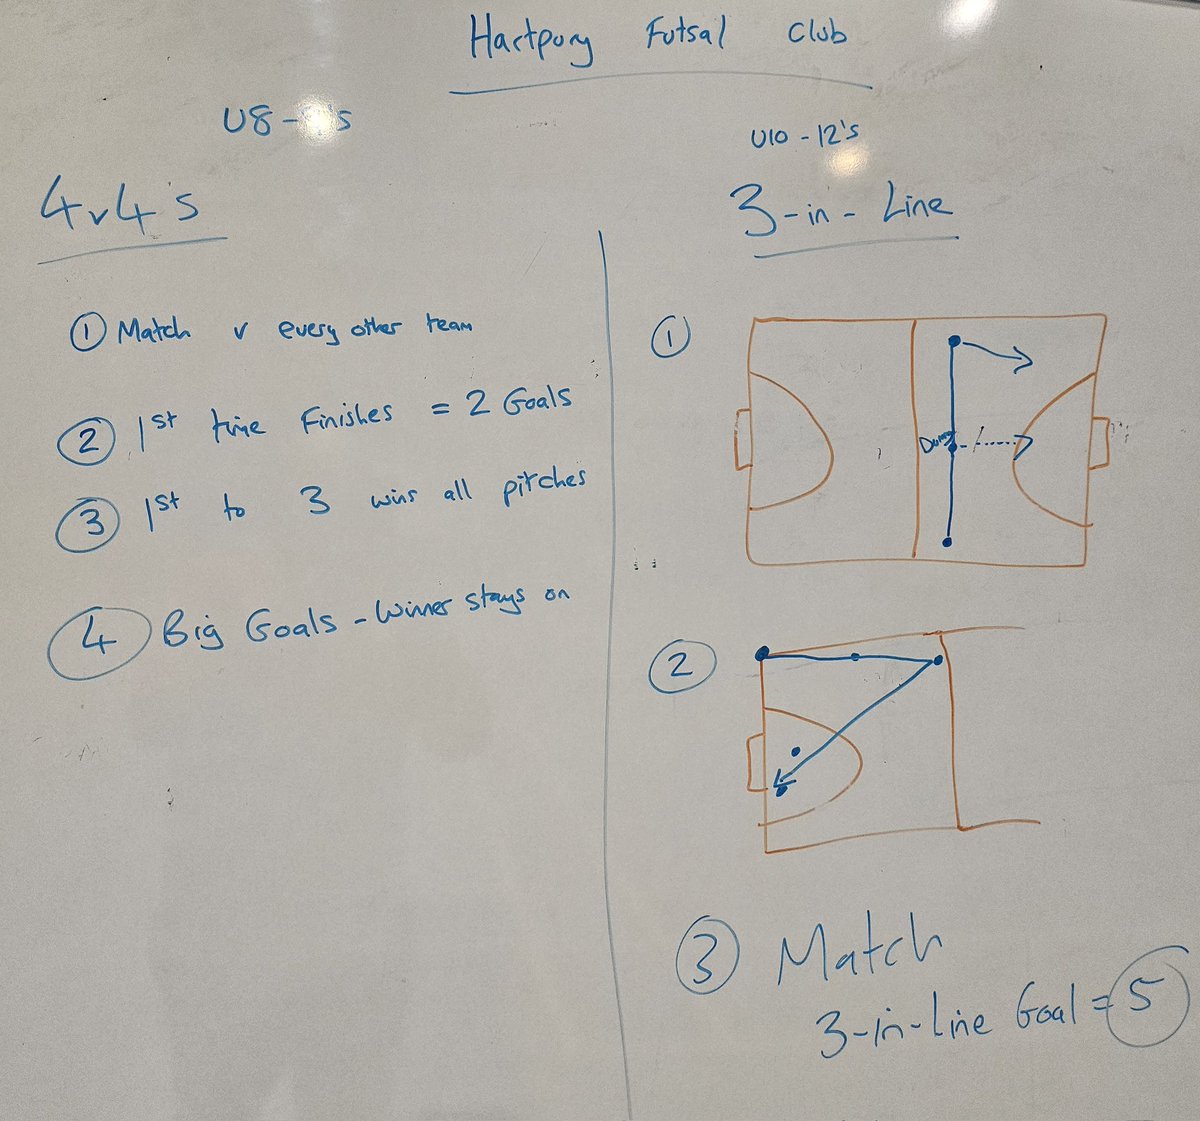 Hartpury Futsal Club
U8 - 's
4v4's
① Match v every other team
② 1st time Finishes = 2 Goals
③ 1st to 3 wins all pitches
④ Big Goals - Winner stays on
U10 - 12's
3-in-Line
①
②
③ Match
3-in-Line Goal = 5